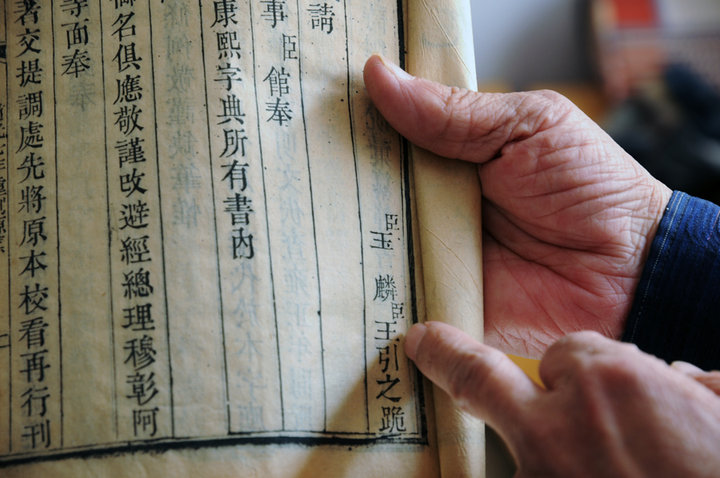 臣玉麟臣王引之跪
請
事臣館奉
康熙字典所有書內
御名俱應敬謹改避經總理穆彰阿
等面奉
著交提調處先將原本校看再行刊